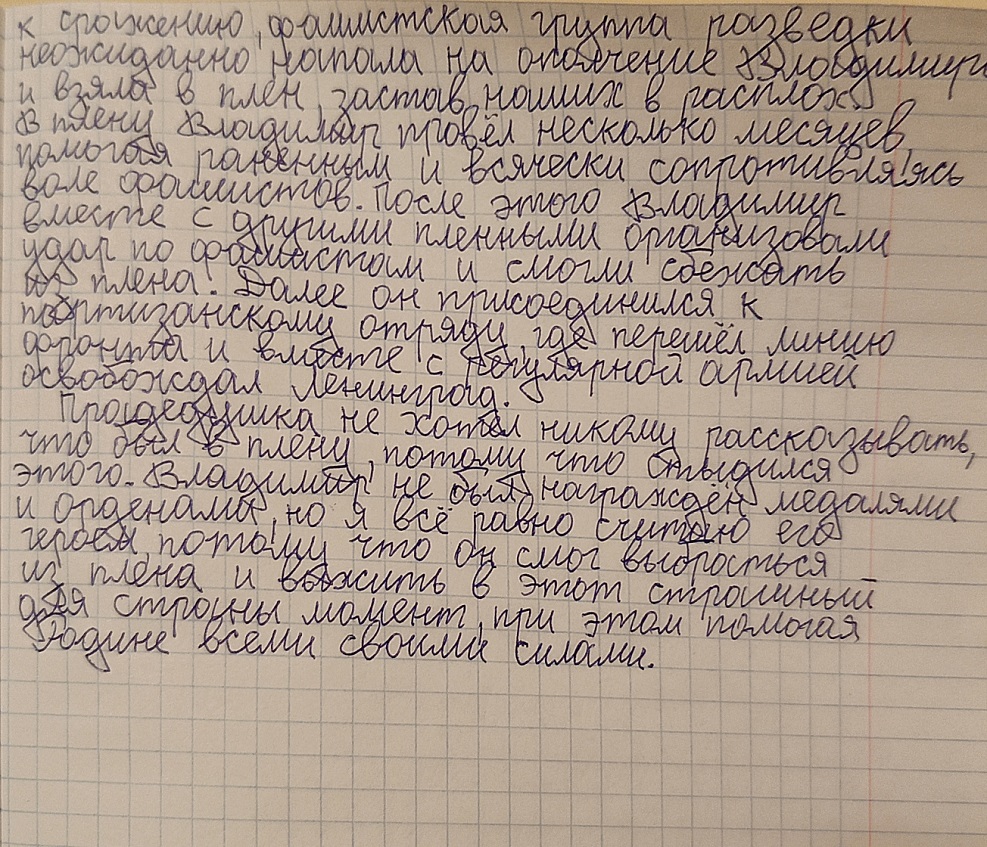 к сражению, фашистская группа разведки
неожиданно напала на ополчение Владимира
и взяла в плен, застав наших в расплох.
В плену Владимир провёл несколько месяцев,
помогая раненным и всячески сопротивляясь
воле фашистов. После этого Владимир
вместе с другими пленными организовали
удар по фашистам и смогли сбежать
из плена. Далее он присоединился к
партизанскому отряду, где перешёл линию
фронта и вместе с регулярной армией
освобождал Ленинград.
Прадедушка не хотел никому рассказывать,
что был в плену, потому что стыдился
этого. Владимир не был награждён медалями
и орденами, но я всё равно считаю его
героем, потому что он смог выбраться
из плена и выжить в этот страшный
для страны момент, при этом помогая
Родине всеми своими силами.